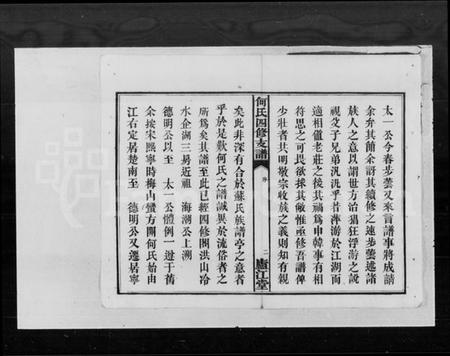 太一公今春步蕓又來言譜事將成請
余弁其簡余訝其續修之速步蕓述諸
族人之意以謂世方洽猖狂浮游之說
視父子兄弟汎汎乎若萍游於江湖而
適相值老莊之後其禍為申韓事有相
符思之可畏欲採其敝惟亟修吾譜俾
少壯者共明敬宗收族之義則知有親
何氏四修支譜
序
二
廬江堂
矣此非深有合於蘇氏族譜亭之意者
乎於是歎何氏之譜誠異於流俗者之
所為矣其譜至此已經四修關洪山冷
水企湖三易近祖 海湖公上溯
德明公以至 太一公體例一遵于舊
余按宋熙寧時梅山蠻方開何氏始由
江右定居楚南至 德明公又遷居寧